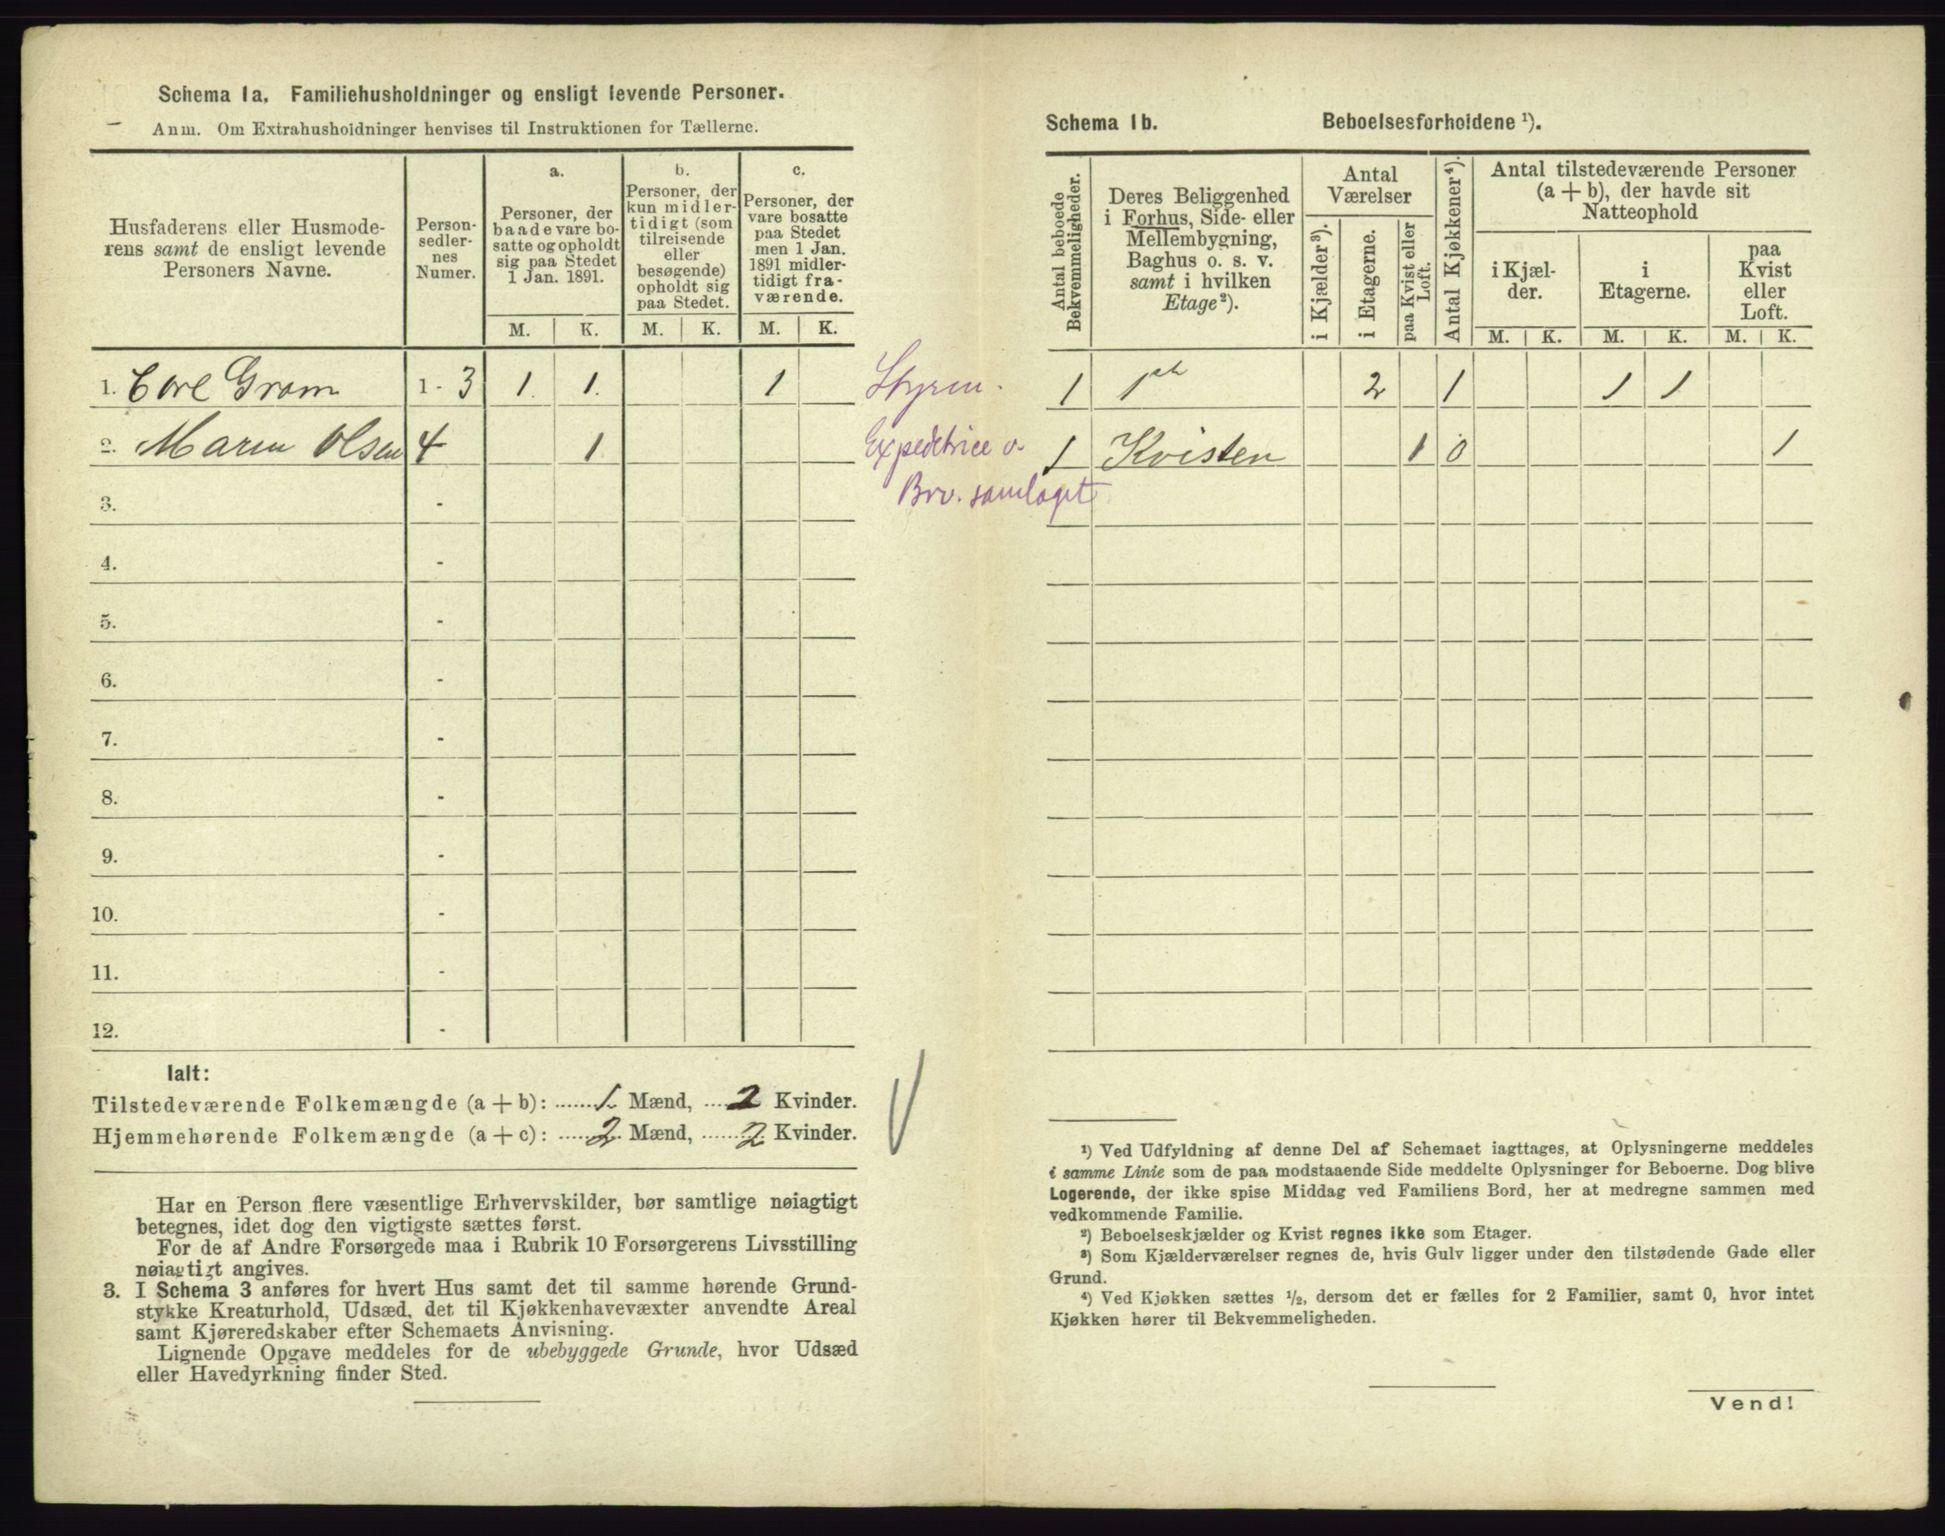 Schema 1a. Familiehusholdninger og ensligt levende Personer.
Anm. Om Extrahusholdninger henvises til Instruktionen for Tællerne.
Husfaderens eller Husmoderens samt de ensligt levende Personers Navne.
Person-sedlernes Numer.
a.
Personer, der baade vare bosatte og opholdt sig paa Stedet 1 Jan. 1891.
b.
Personer, der kun midlertidigt (som tilreisende eller besøgende) opholdt sig paa Stedet.
c.
Personer, der vare bosatte paa Stedet men 1 Jan. 1891 midlertidigt fraværende.
M. K. M. K. M. K.
1. Carl Gram 1 - 3 1. 1. 1
2. Maren Olsen 4 1
3. -
4. -
5. -
6. -
7. -
8. -
9. -
10. -
11. -
12. -
Ialt:
Tilstedeværende Folkemængde (a + b): 1 Mænd, 2 Kvinder.
Hjemmehørende Folkemængde (a + c): 2 Mænd, 2 Kvinder.
Har en Person flere væsentlige Erhvervskilder, bør samtlige nøiagtigt
betegnes, idet dog den vigtigste sættes først.
For de af Andre Forsørgede maa i Rubrik 10 Forsørgerens Livsstilling
nøiagtigt angives.
3. I Schema 3 anføres for hvert Hus samt det til samme hørende Grund-
stykke Kreaturhold, Udsæd, det til Kjøkkenhavevæxter anvendte Areal
samt Kjøreredskaber efter Schemaets Anvisning.
Lignende Opgave meddeles for de ubebyggede Grunde, hvor Udsæd
eller Havedyrkning finder Sted.
Expeditrice v
Brv. samlaget
Schema 1b. Beboelsesforholdene ¹).
Antal beboede Bekvemmeligheder.
Deres Beliggenhed i Forhus, Side- eller Mellembygning, Baghus o. s. v. samt i hvilken Etage²).
Antal Værelser
i Kjælder³).
i Etagerne.
paa Kvist eller Loft.
Antal Kjøkkener⁴).
Antal tilstedeværende Personer (a + b), der havde sit Natteophold
i Kjælder.
i Etagerne.
paa Kvist eller Loft.
M. K. M. K. M. K.
1 1ste 2 1 1 1
1 Kvisten 1 0 1
¹) Ved Udfyldning af denne Del af Schemaet iagttages, at Oplysningerne meddeles
i samme Linie som de paa modstaaende Side meddelte Oplysninger for Beboerne. Dog blive
Logerende, der ikke spise Middag ved Familiens Bord, her at medregne sammen med
vedkommende Familie.
²) Beboelseskjælder og Kvist regnes ikke som Etager.
³) Som Kjælderværelser regnes de, hvis Gulv ligger under den tilstødende Gade eller
Grund.
⁴) Ved Kjøkken sættes ½, dersom det er fælles for 2 Familier, samt 0, hvor intet
Kjøkken hører til Bekvemmeligheden.
Vend!